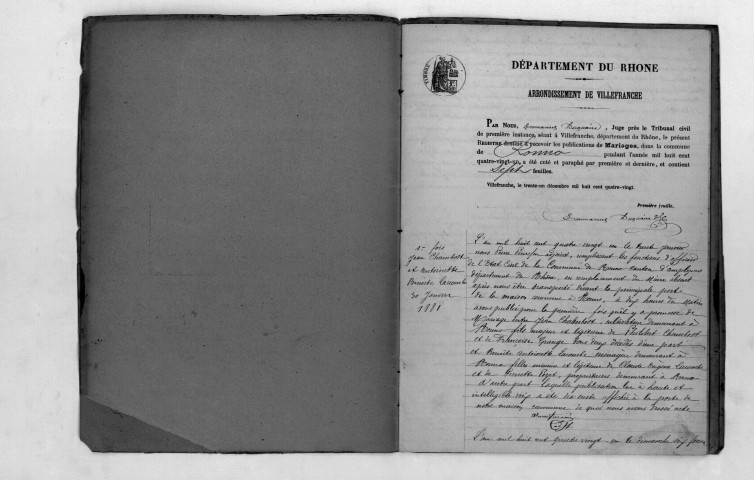 TIMBRE
DÉPARTEMENT DU RHONE
ARRONDISSEMENT DE VILLEFRANCHE
PAR NOUS, Juge près le Tribunal civil
de première instance, séant à Villefranche, département du Rhône, le présent
REGISTRE destiné à recevoir les publications de Mariages, dans la commune
de Ronno pendant l'année mil huit cent
quatre-vingt-un, a été coté et paraphé par première et dernière, et contient
Sept feuilles.
Villefranche, le trente-un décembre mil huit cent quatre-vingt.
Première feuille.
1re fois
Jean
et antoinette
Benoite
30 Janvier
1881
L'an mil huit cent quatre vingt un le trente janvier
nous Pierre adjoint, remplissant les fonctions d'officier
de l'Etat Civil de la Commune de Ronno canton d'amplepuis
département du Rhône, en remplacement du Maire absent
après nous être transporté devant la principale porte
de la maison commune à Ronno, à dix heures du Matin
avons publié pour la première fois qu'il y a promesse de
Mariage entre Jean cultivateur demeurant à
Ronno fils majeur et légitime de Philibert
et de Françoise Grange tous deux décédés d'une part
et Benoite antoinette ménagère demeurant à
Ronno fille mineure et légitime de Claude
et de propriétaires demeurant à Ronno
d'autre part laquelle publication lue à haute et
intelligible voix a été de suite affichée à la porte de
notre maison commune de quoi nous avons dressé acte
L'an mil huit cent quatre vingt un le dimanche six